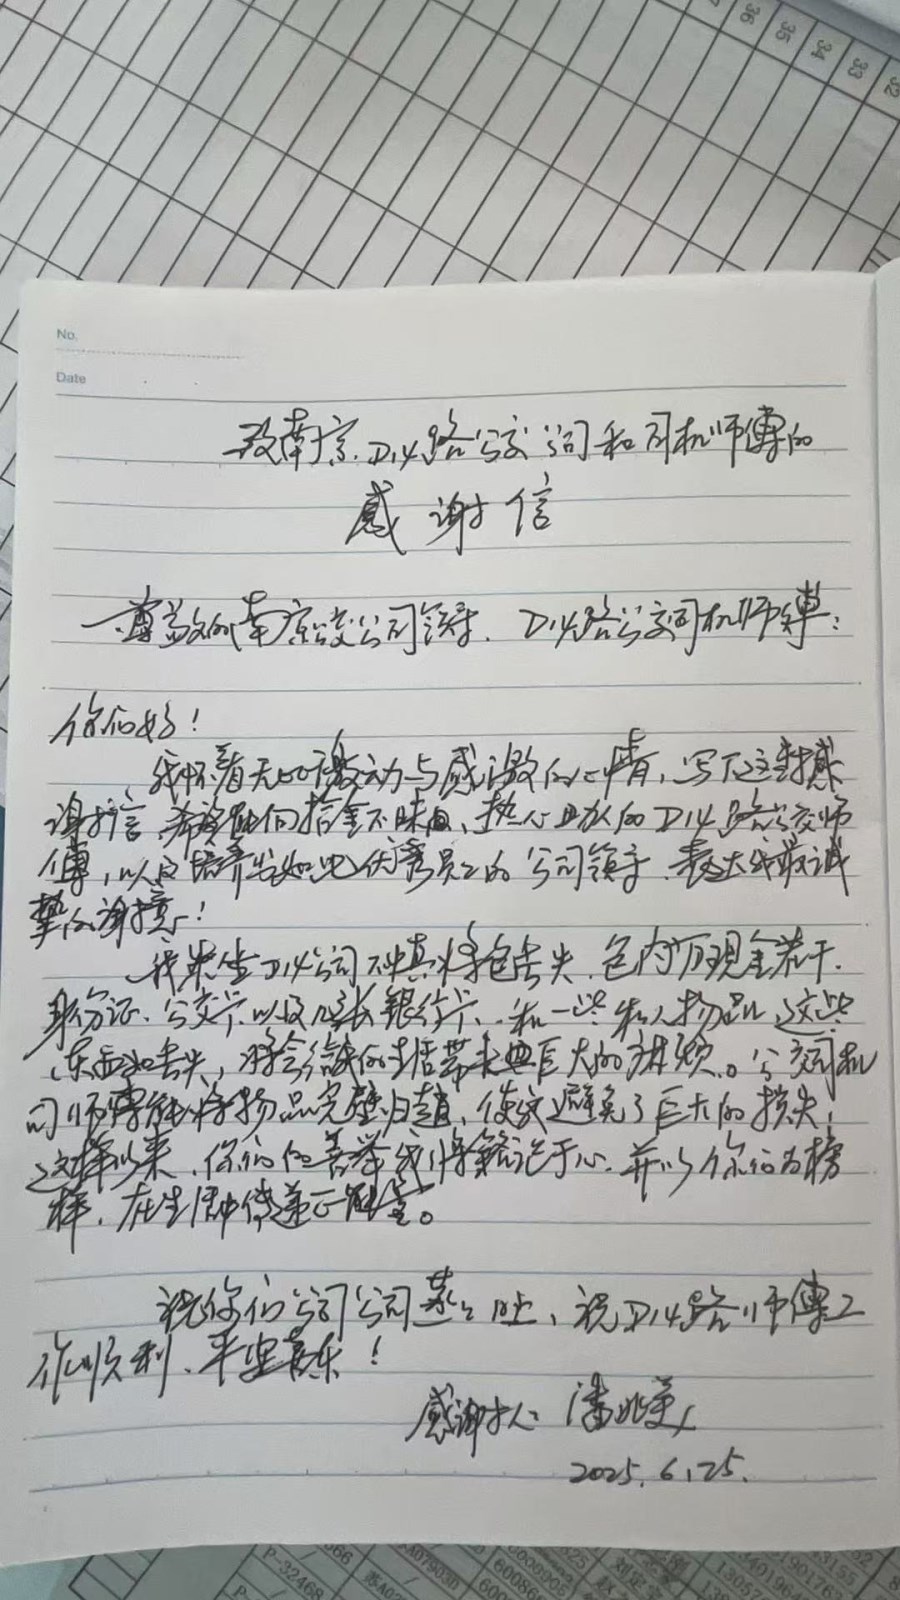 36 35 34 33 32
No.
Date
致南京D14路公交公司和司机师傅的
感谢信
尊敬的南京公交公司领导、D14路公交司机师傅:
你们好!
我怀着无比激动与感激的心情,写下这封感
谢信 拾金不昧、热心助人的D14路公交师
傅,以及培养出如此优秀员工的公司领导、表达我最诚
挚的谢意!
我乘坐D14公司不慎将包丢失、包内有现金若干、
身份证、公交卡以及几张银行卡、和一些私人物品、这些
东西如丢失,将会给我的生活带来巨大的麻烦。公交司机
师傅能将物品完璧归赵、使我避免了巨大的损失,
这样以来、你们的善举我将铭记于心、并以你们为榜
样、在生活中传递正能量。
祝你们公司蒸蒸日上、祝D14路师傅工
作顺利、平安喜乐!
感谢人:潘
2025.6.25.
P-32468
600086